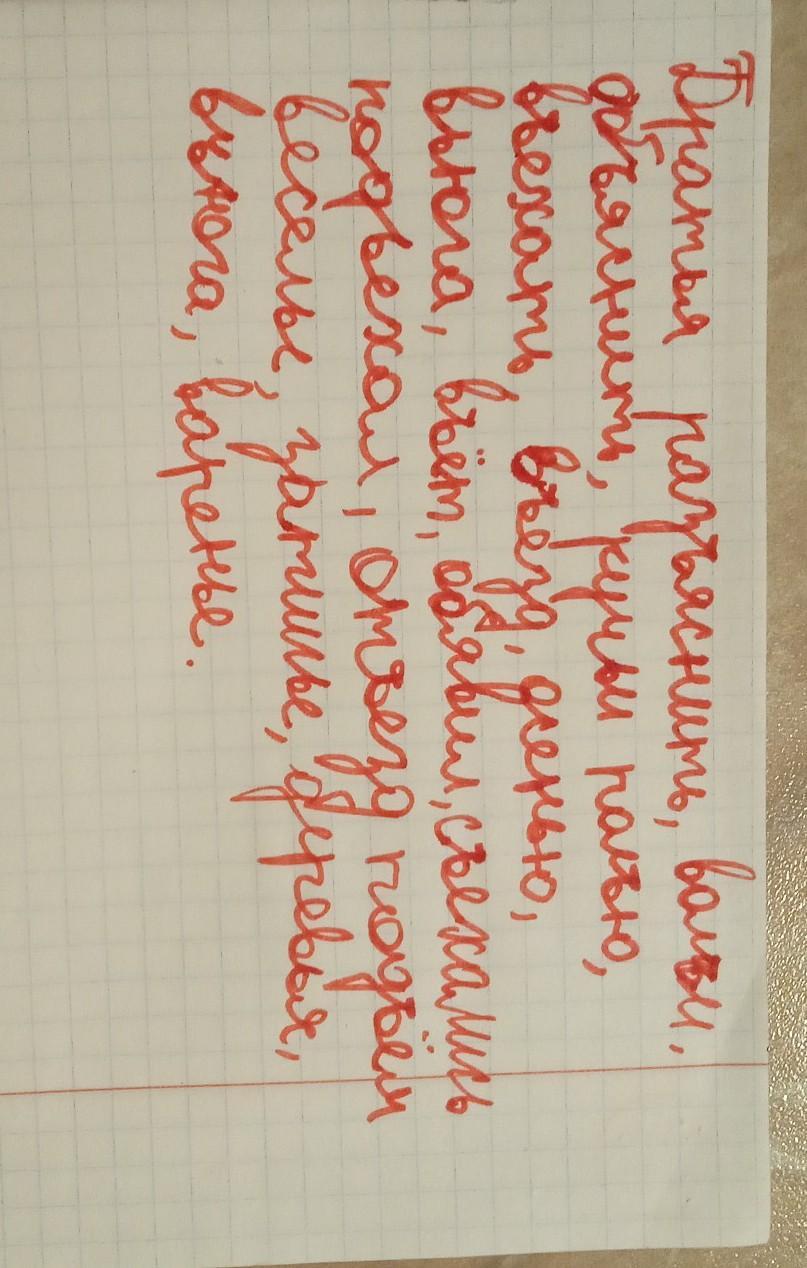 Братья разъяснить,
объяснить, ручьи полью,
въехать въезд, осенью,
вьюга, въёт, обявил, съехались
подъехал, отъезд подъём
веселье, затишье, деревья,
вьюга, варенье.